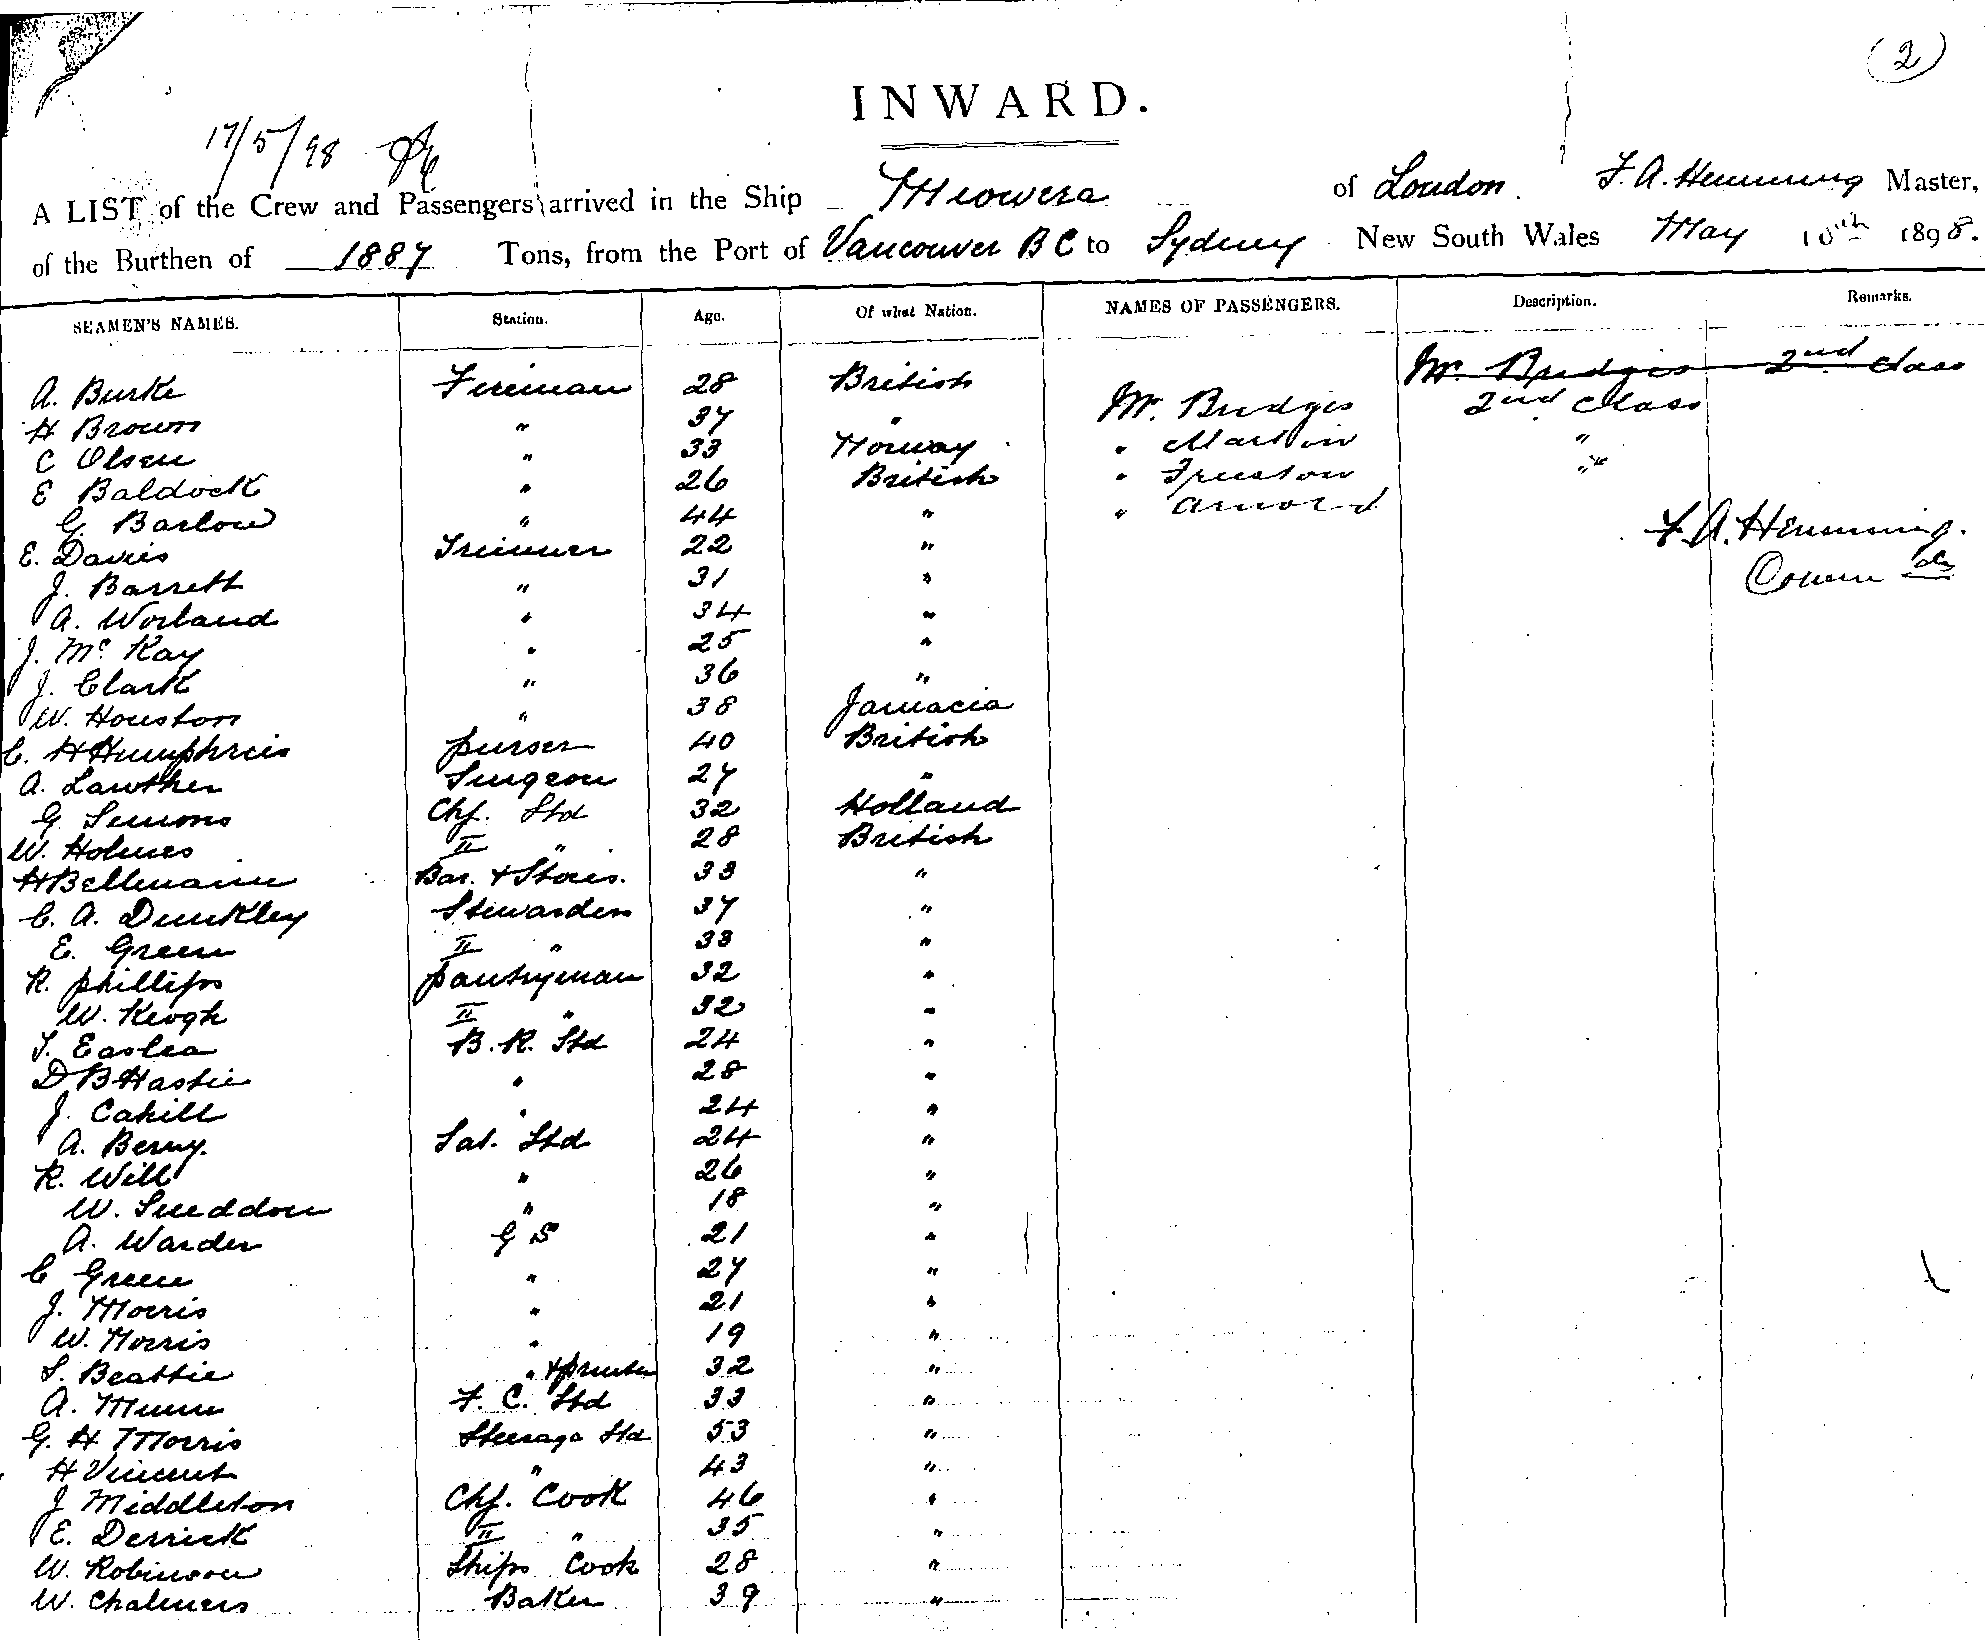 (2)
INWARD.
17/5/98
A LIST of the Crew and Passengers arrived in the Ship Miowera of London F. A. Hemming Master,
of the Burthen of 1887 Tons, from the Port of Vancouver B C to Sydney New South Wales May 10th 1898.
SEAMEN'S NAMES. Station. Age. Of what Nation. NAMES OF PASSENGERS. Description. Remarks.
Mr. Bridges 2nd class
A. Burke Fireman 28 British
H Brown " 37 " Mr. Bridges 2nd Class
C Olsen " 33 Norway " Martin "
E Baldock " 26 British " Fruston "
G. Barlow " 44 " " Arnold
F. A. Hemming.
E. Davis Trimmer 22 "
J. Barrett " 31 "
A. Worland " 34 "
J. Mc Kay " 25 "
J. Clark " 36 "
W. Houston " 38 Jamacia
C. H Humphreis purser 40 British
A. Lawther Surgeon 27 "
G. Simons Chf. Std 32 Holland
W. Holmes II " 28 British
H Bellmann Bar. & Stores. 33 "
C. A. Dunkley Stewardess 37 "
E. Green II " 33 "
R. phillips pantryman 32 "
W. Keogh II " 32 "
T. Easlea B. R. Std 24 "
D B Hastie " 28 "
J. Cahill " 24 "
A. Berry. Sal. Std 24 "
R. Will " 26 "
W. Sneddon " 18 "
A. Warden G S 21 "
C Green " 27 "
J. Morris " 21 "
W. Norris " 19 "
S. Beattie " & printer 32 "
A. Munn F. C. Std 33 "
G. H Morris Steerage Std 53 "
H Vincent " 43 "
J Middleton Chf. Cook 46 "
E. Derrick II " 35 "
W. Robinson Ships Cook 28 "
W. Chalmers Baker 39 "